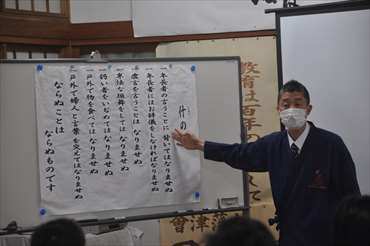 什の
一、年長者の言うことに背いてはなりませぬ
一、年長者にはお辞儀をしなければなりませぬ
一、虚言を言うことはなりませぬ
一、卑怯な振舞をしてはなりませぬ
一、弱い者をいぢめてはなりませぬ
一、戸外で物を食べてはなりませぬ
一、戸外で婦人と言葉を交えてはなりませぬ
ならぬことは
ならぬものです
教育は百年
會津藩